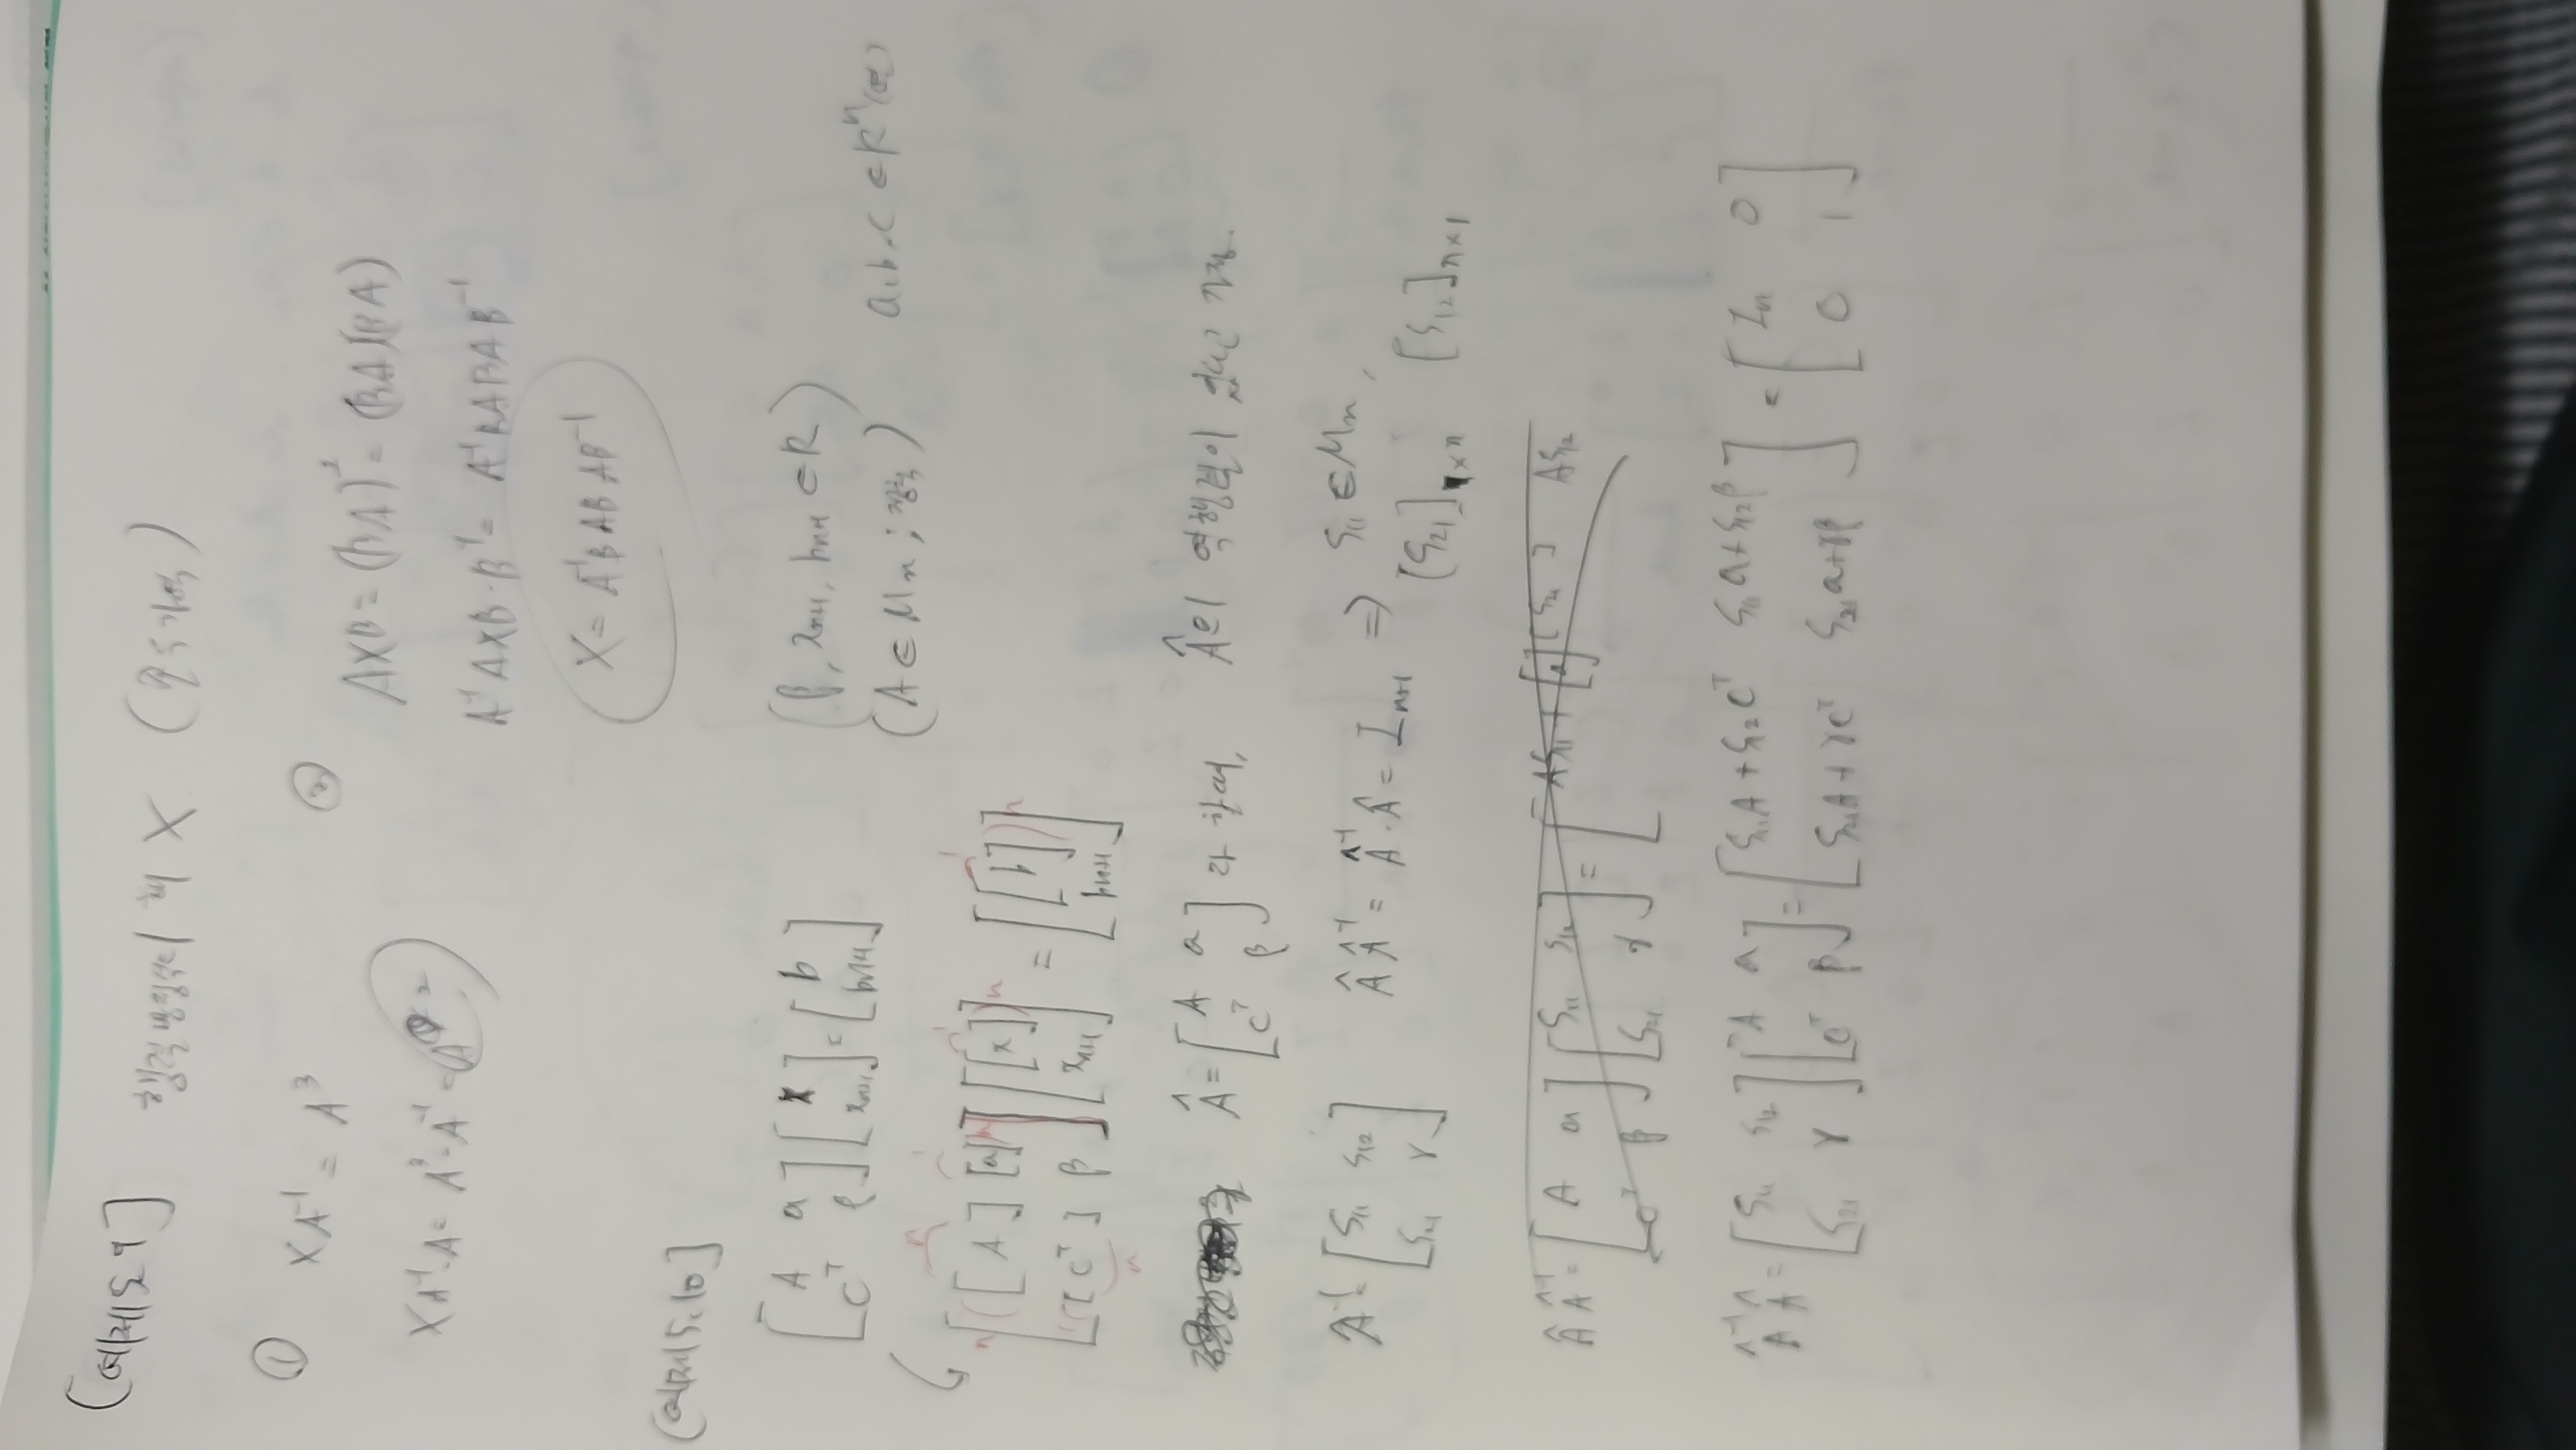 (예제5.9] 행렬방정식의 해 X (맞가역)
① XA⁻¹ = A³
XA⁻¹·A = A³·A = A⁴
② AXB = (BA)² = (BA)(BA)
A⁻¹AXB·B⁻¹ = A⁻¹BABAB⁻¹
X = A⁻¹BABAB⁻¹
(예제5.10]
[A a; Cᵀ β][x; xₙ₊₁] = [b; bₙ₊₁] (β, xₙ₊₁, bₙ₊₁ ∈ R)
(A ∈ Mₙ ; 정칙) a, b, c ∈ Rⁿ
[[A] [a]; [Cᵀ] β][[x]; xₙ₊₁] = [[b]; bₙ₊₁]
Â = [A a; Cᵀ β] 라 하며, Â의 역행렬이 있다고 가정.
Â⁻¹ = [S₁₁ S₁₂; S₂₁ γ] ÂÂ⁻¹ = Â⁻¹·Â = Iₙ₊₁ ⇒ S₁₁ ∈ Mₙ,
[S₂₁]₁ₓₙ [S₁₂]ₙₓ₁
ÂÂ⁻¹ = [A a; Cᵀ β][S₁₁ S₁₂; S₂₁ γ] = [AS₁₁ + [a][S₂₁] AS₁₂
Â⁻¹Â = [S₁₁ S₁₂; S₂₁ γ][A a; Cᵀ β] = [S₁₁A + S₁₂Cᵀ S₁₁a + S₁₂β; S₂₁A + γCᵀ S₂₁a + γβ] = [Iₙ 0; 0 1]